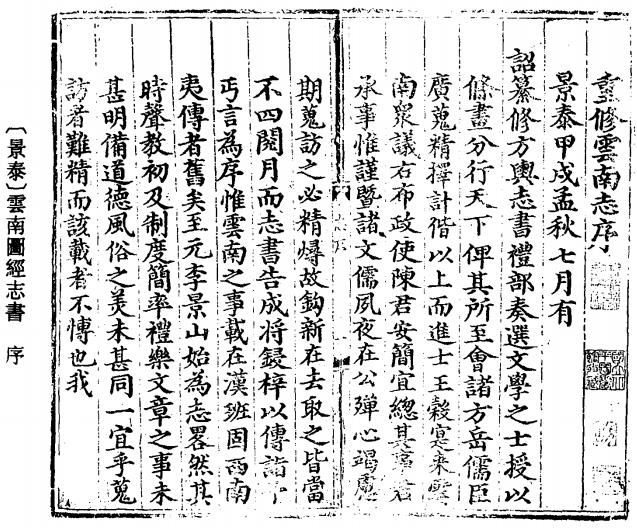 重修雲南志序
景泰甲戌孟秋七月有
詔纂修方輿志書禮部奏選文學之士授以
條畫分行天下俾其所至會諸方岳儒臣
廣蒐精擇計偕以上而進士王穀寔来雲
南衆議右布政使陳君安簡宜總其事君
承事惟謹暨諸文儒夙夜在公殫心竭慮
期蒐訪之必精燖故鉤新在去取之皆當
不四閱月而志書告成将鋟梓以傳詣
丐言為序惟雲南之事載在漢班固西南
夷傳者舊矣至元李景山始為志畧然其
時聲教初及制度簡率禮樂文章之事未
甚明備道德風俗之美未甚同一宜乎蒐
訪者難精而該載者不慱也我
〔景泰〕雲南圖經志書 序